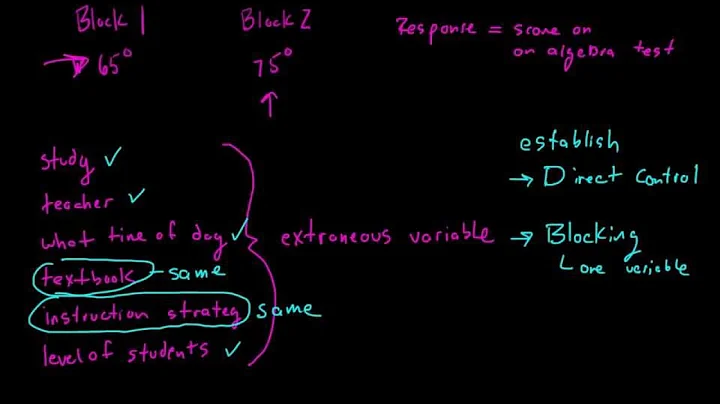 Block 1
Block 2
Response = score on
on algebra test
65°
75°
study ✓
teacher ✓
what time of day ✓
textbook - same
instruction strateg same
level of students ✓
extraneous variable
establish
→ Direct control
→ Blocking
one variable